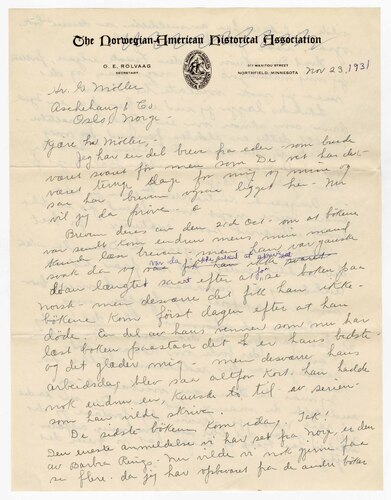 The Norwegian-American Historical Association
O. E. RÖLVAAG
SECRETARY
311 MANITOU STREET
NORTHFIELD, MINNESOTA
Nov 23, 1931
Hr. G Möller
Aschehoug & Co
Oslo, Norge -
Kjære hr Möller, -
Jeg har en del breve fra eder som burde
været svart for men som De vet har det
været tunge dage for mig og mine og
saa har brevene ligget her - Nu
vil jeg da pröve -
Brevet deres av den 2nd Oct - om at bökene
var sendt kom endnu mens min mand
kunde læse brevet - men han var ganske
svak da og
han længtet efter at se boken paa
norsk - men desværre det fik han ikke -
bökene kom först dagen efter at han
döde. En del av hans venner som nu har
læst boken paastaar det er hans bedste
og det glæder mig - men desværre hans
arbeidsdag blev saa altfor kort. han hadde
nok endnu en, kanske to til av serien
som han vilde skrive.
De sidste bökene kom idag, Tak!
Den eneste anmeldelse vi har set fra Norge, er den
av Barbra Ring. Nu vilde vi nok gjerne faa
se flere - da jeg har opbevart fra de andre böker